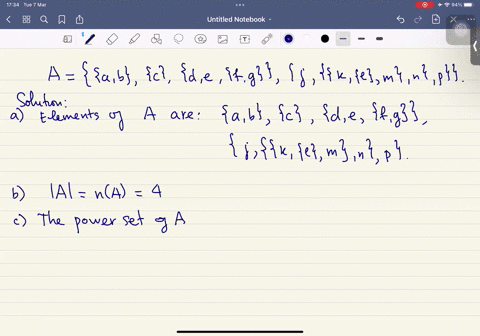 17:34 Tue 7 Mar
94%
Untitled Notebook
A = {{a,b}, {c}, {d,e, {f,g}}, {j, {{k, {e}, m}, n}, p}}.
Solution:
a) Elements of A are: {a,b}, {c}, {d,e, {f,g}},
{j, {{k, {e}, m}, n}, p}.
b) |A| = n(A) = 4
c) The power set of A